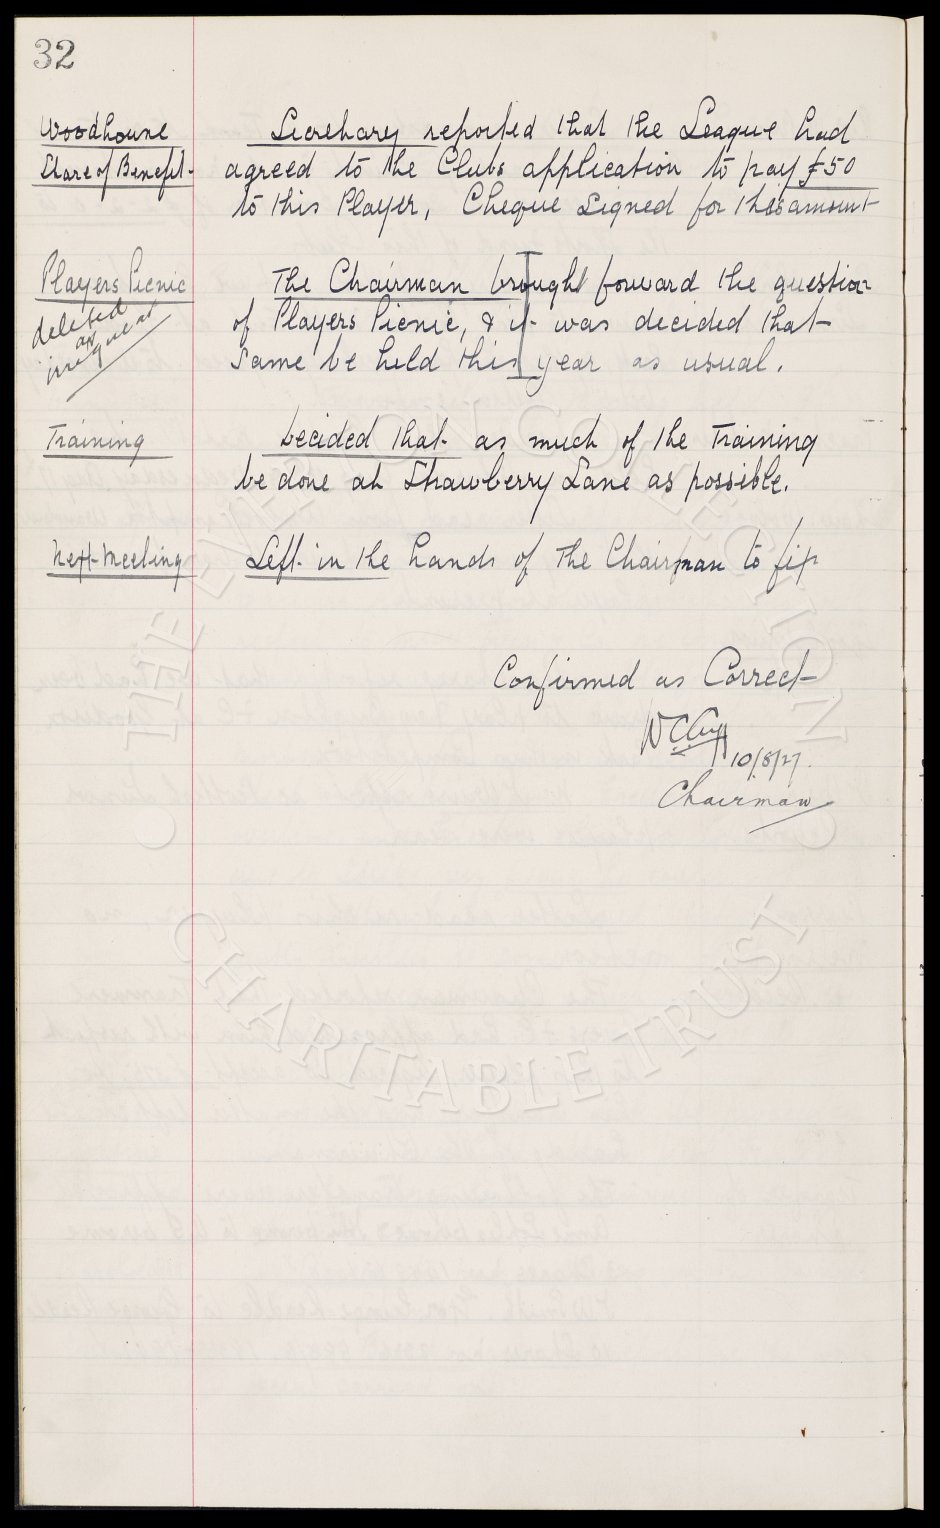 32
Woodhouse
Share of Benefit.
Secretary reported that the League had
agreed to the Clubs application to pay £50
to this Player, Cheque signed for this amount
Players Picnic
deleted
as
The Chairman brought forward the question
of Players Picnic, & it was decided that
same be held this year as usual.
Training
Decided that as much of the Training
be done at Strawberry Lane as possible.
Next Meeting
Left in the hands of the Chairman to fix
Confirmed as Correct
W C Cuff
10/8/27.
Chairman
THE EVERTON COLLECTION
CHARITABLE TRUST